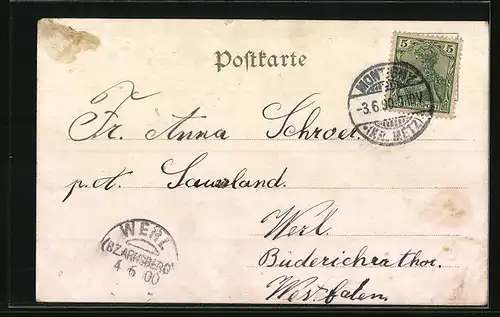 Postkarte
5 5
MONTIGNY
-3.6.00
*(KR. METZ)
Fr. Anna Schroer
p. A. Sauerland.
Werl.
Büderichrathor.
Westfalen.
WERL
(BZ. ARNSBERG)
4 6 00